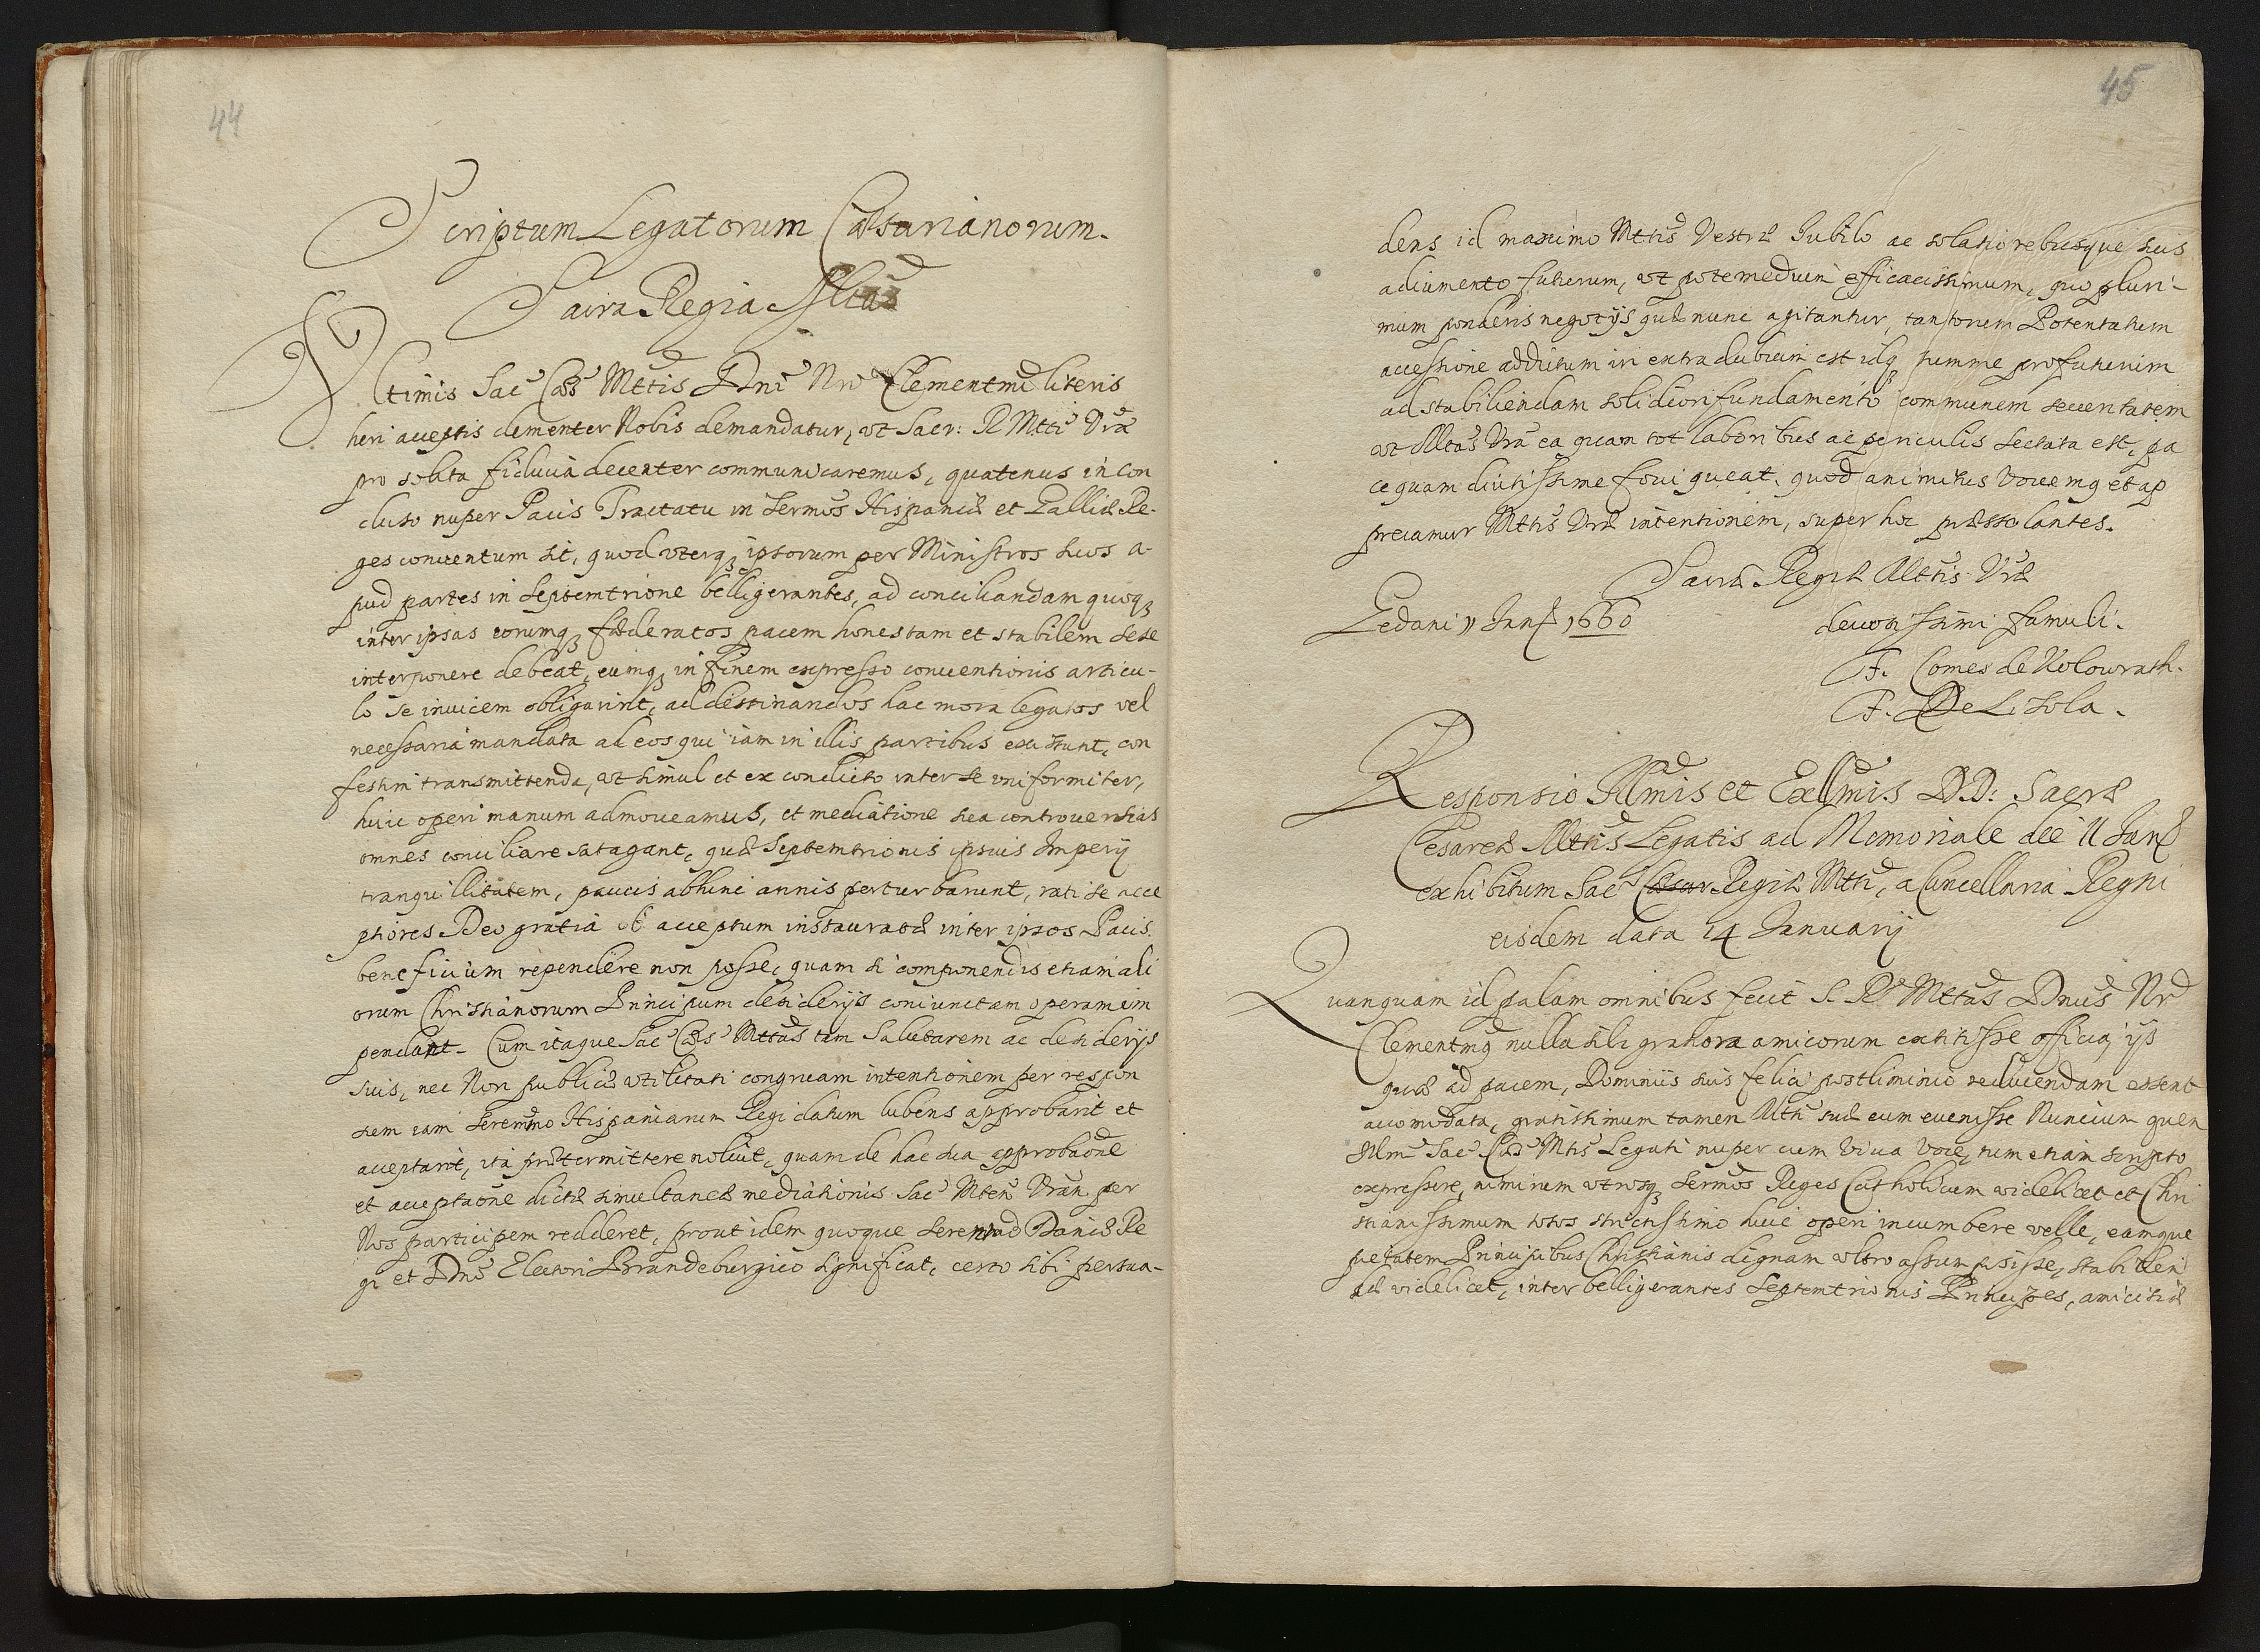 44
Scriptum Legatorum Cæsarianorum.
Sacra Regia Mttas
Vltimis Sac Cæs Mttis Dni Nri Clementmis literis
heri acceptis clementer Nobis demandatur, vt Sacr: R Mtti Vræ
pro solita fiducia decenter communicaremus, quatenus in con
cluso nuper Pacis Tractatu in Sermos Hispaniæ et Galliæ Re-
ges conventum sit, quod vterq₃ ipsorum per Ministros suos a-
pud partes in Septemtrione belligerantes, ad conciliandam quoq₃
inter ipsas eorumq₃ fæderatos pacem honestam et stabilem sese
interponere debeat, eumq₃ in finem expresso conuentionis articu-
lo se inuicem obligarint, ad destinandos hac mora legatos vel
necessaria mandata ad eos qui iam in illis partibus existunt, con
festim transmittenda, vt simul et ex condicto inter se vniformiter,
huic operi manum admoueamus, et mediatione sua controuersias
omnes conciliare satagant, quæ Septemtrionis ipsius Imperij
tranquillitatem, paucis abhinc annis perturbarunt, rati se acce
ptiores Deo gratia ob acceptum instauratæ inter ipsos Pacis
beneficium rependere non posse, quam si componendis etiam ali
orum Christianorum Principum desiderijs coniunctam operam im
pendant. Cum itaque Sac Cæs Mttas tam Salutarem ac desiderijs
suis, nec Non publicæ vtilitati congruam intentionem per respon
sem iam Serenmo Hispaniarum Regi datum lubens approbarit et
acceptarit, ita prætermittere noluit, quam de hac sua approbaone
et acceptaone dictæ simultaneæ mediationis Sac Mtem Vram per
Nos participem redderet, prout idem quoque Serenmo Daniæ Re
gi et Dno Electori Brandeburgico significat, certo sibi persua-
45
dens id maximo Mttis Vestræ Iubilo ac solatio rebusque suis
adiumento futurum, vt pote medium efficacissimum, quo pluri-
mum ponderis negotijs quæ nunc agitantur, tantorum Potentatum
accessione additum iri extra dubium est idq₃ summe profuturum
ad stabiliendam solidiori fundamento communem securitatem
vt Mttas Vra ea quam tot laboribus ac periculis sectata est, pa
ce quam diutissime frui queat. quod animitus vouemg et ap
precamur Mttis Vræ intentionem, super hoc præstolantes.
Sacræ Regiæ Mttis Vræ
Gedani 11 Ian 1660
deuotissimi famuli.
F. Comes de Kolowrath.
F. De Lisola.
Responsio Illmis et Exllmis DD: Sacræ
Cesareæ Mttis Legatis ad Memoriale die 11 Ian
exhibitum Sac Cæsar Regiæ Mtti, a Cancellaria Regni
eisdem data 14 Ianuarij
Quanquam id palam omnibus fecit S. R. Mttas Dnus Nr
Clementmg nulla sibi gratiora amicorum extitisse officia, ijs
quæ ad pacem, Dominijs suis felici postliminio reducendam essent
accomodata, gratissimum tamen Mtti suæ eum euenisse Nuncium quem
Illmi Sac Cæs Mtis Legati nuper cum Viua Voce, tum etiam scripto
expressere, nimirum vtrosq₃ Sermos Reges Catholicum videlicet et Chri
stianissimum totos strictissimo huic operi incumbere velle, eamque
pietatem Principibus Christianis dignam vltro assumpsisse, stabilien
dæ videlicet, inter belligerantes Septemtrionis Principes, amicitiæ